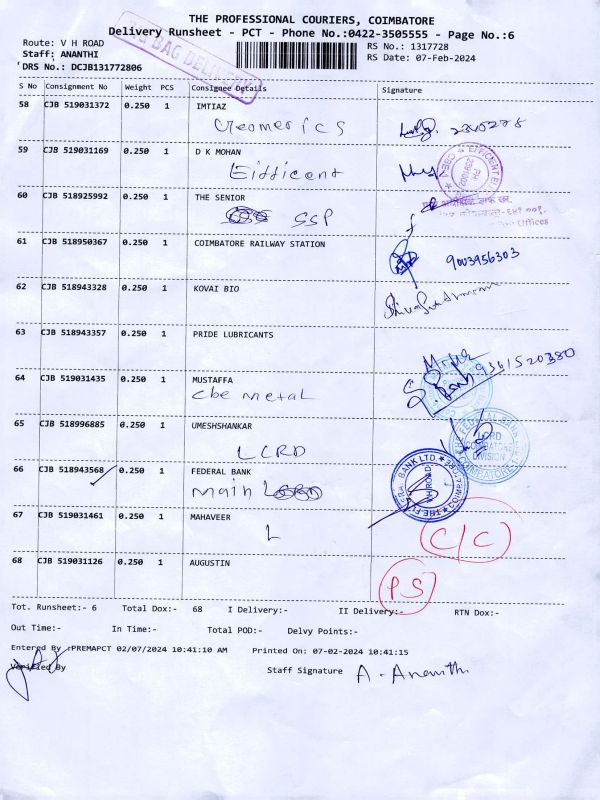 THE PROFESSIONAL COURIERS, COIMBATORE
Delivery Runsheet - PCT - Phone No.:0422-3505555 - Page No.:6
Route: V H ROAD
RS No.: 1317728
Staff: ANANTHI
RS Date: 07-Feb-2024
DRS No.: DCJB131772806
BAG DELIVERY
S No Consignment No Weight PCS Consignee Details Signature
58 CJB 519031372 0.250 1 IMTIAZ
Geomerics
59 CJB 519031169 0.250 1 D K MOHAN
Eifficent
60 CJB 518925992 0.250 1 THE SENIOR
SSP
61 CJB 518950367 0.250 1 COIMBATORE RAILWAY STATION
9003956303
62 CJB 518943328 0.250 1 KOVAI BIO
63 CJB 518943357 0.250 1 PRIDE LUBRICANTS
9361520380
64 CJB 519031435 0.250 1 MUSTAFFA
Cbe metal
65 CJB 518996885 0.250 1 UMESHSHANKAR
LCRD
LCRD
COIMBATORE
DIVISION
66 CJB 518943568 0.250 1 FEDERAL BANK
main
BANK LTD
VH ROAD
67 CJB 519031461 0.250 1 MAHAVEER
L
C/C
68 CJB 519031126 0.250 1 AUGUSTIN
PS
Tot. Runsheet:- 6 Total Dox:- 68 I Delivery:- II Delivery:- RTN Dox:-
Out Time:- In Time:- Total POD:- Delvy Points:-
Entered By :PREMAPCT 02/07/2024 10:41:10 AM Printed On: 07-02-2024 10:41:15
Verified By Staff Signature A. Ananthi